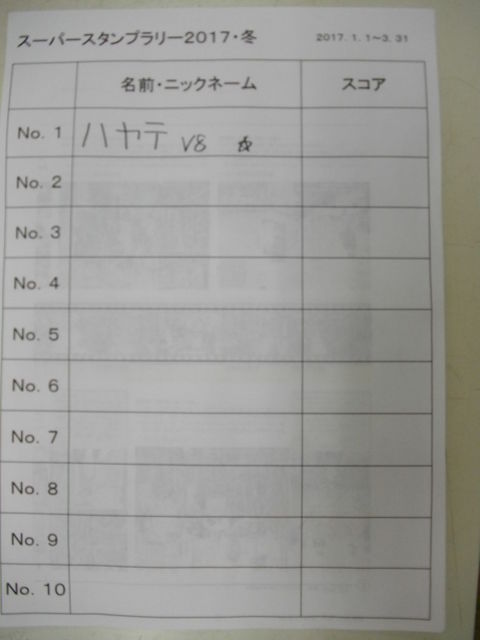 スーパースタンプラリー2017・冬
2017. 1. 1~3. 31
名前・ニックネーム
スコア
No. 1
ハヤテ V8 ☆
No. 2
No. 3
No. 4
No. 5
No. 6
No. 7
No. 8
No. 9
No. 10